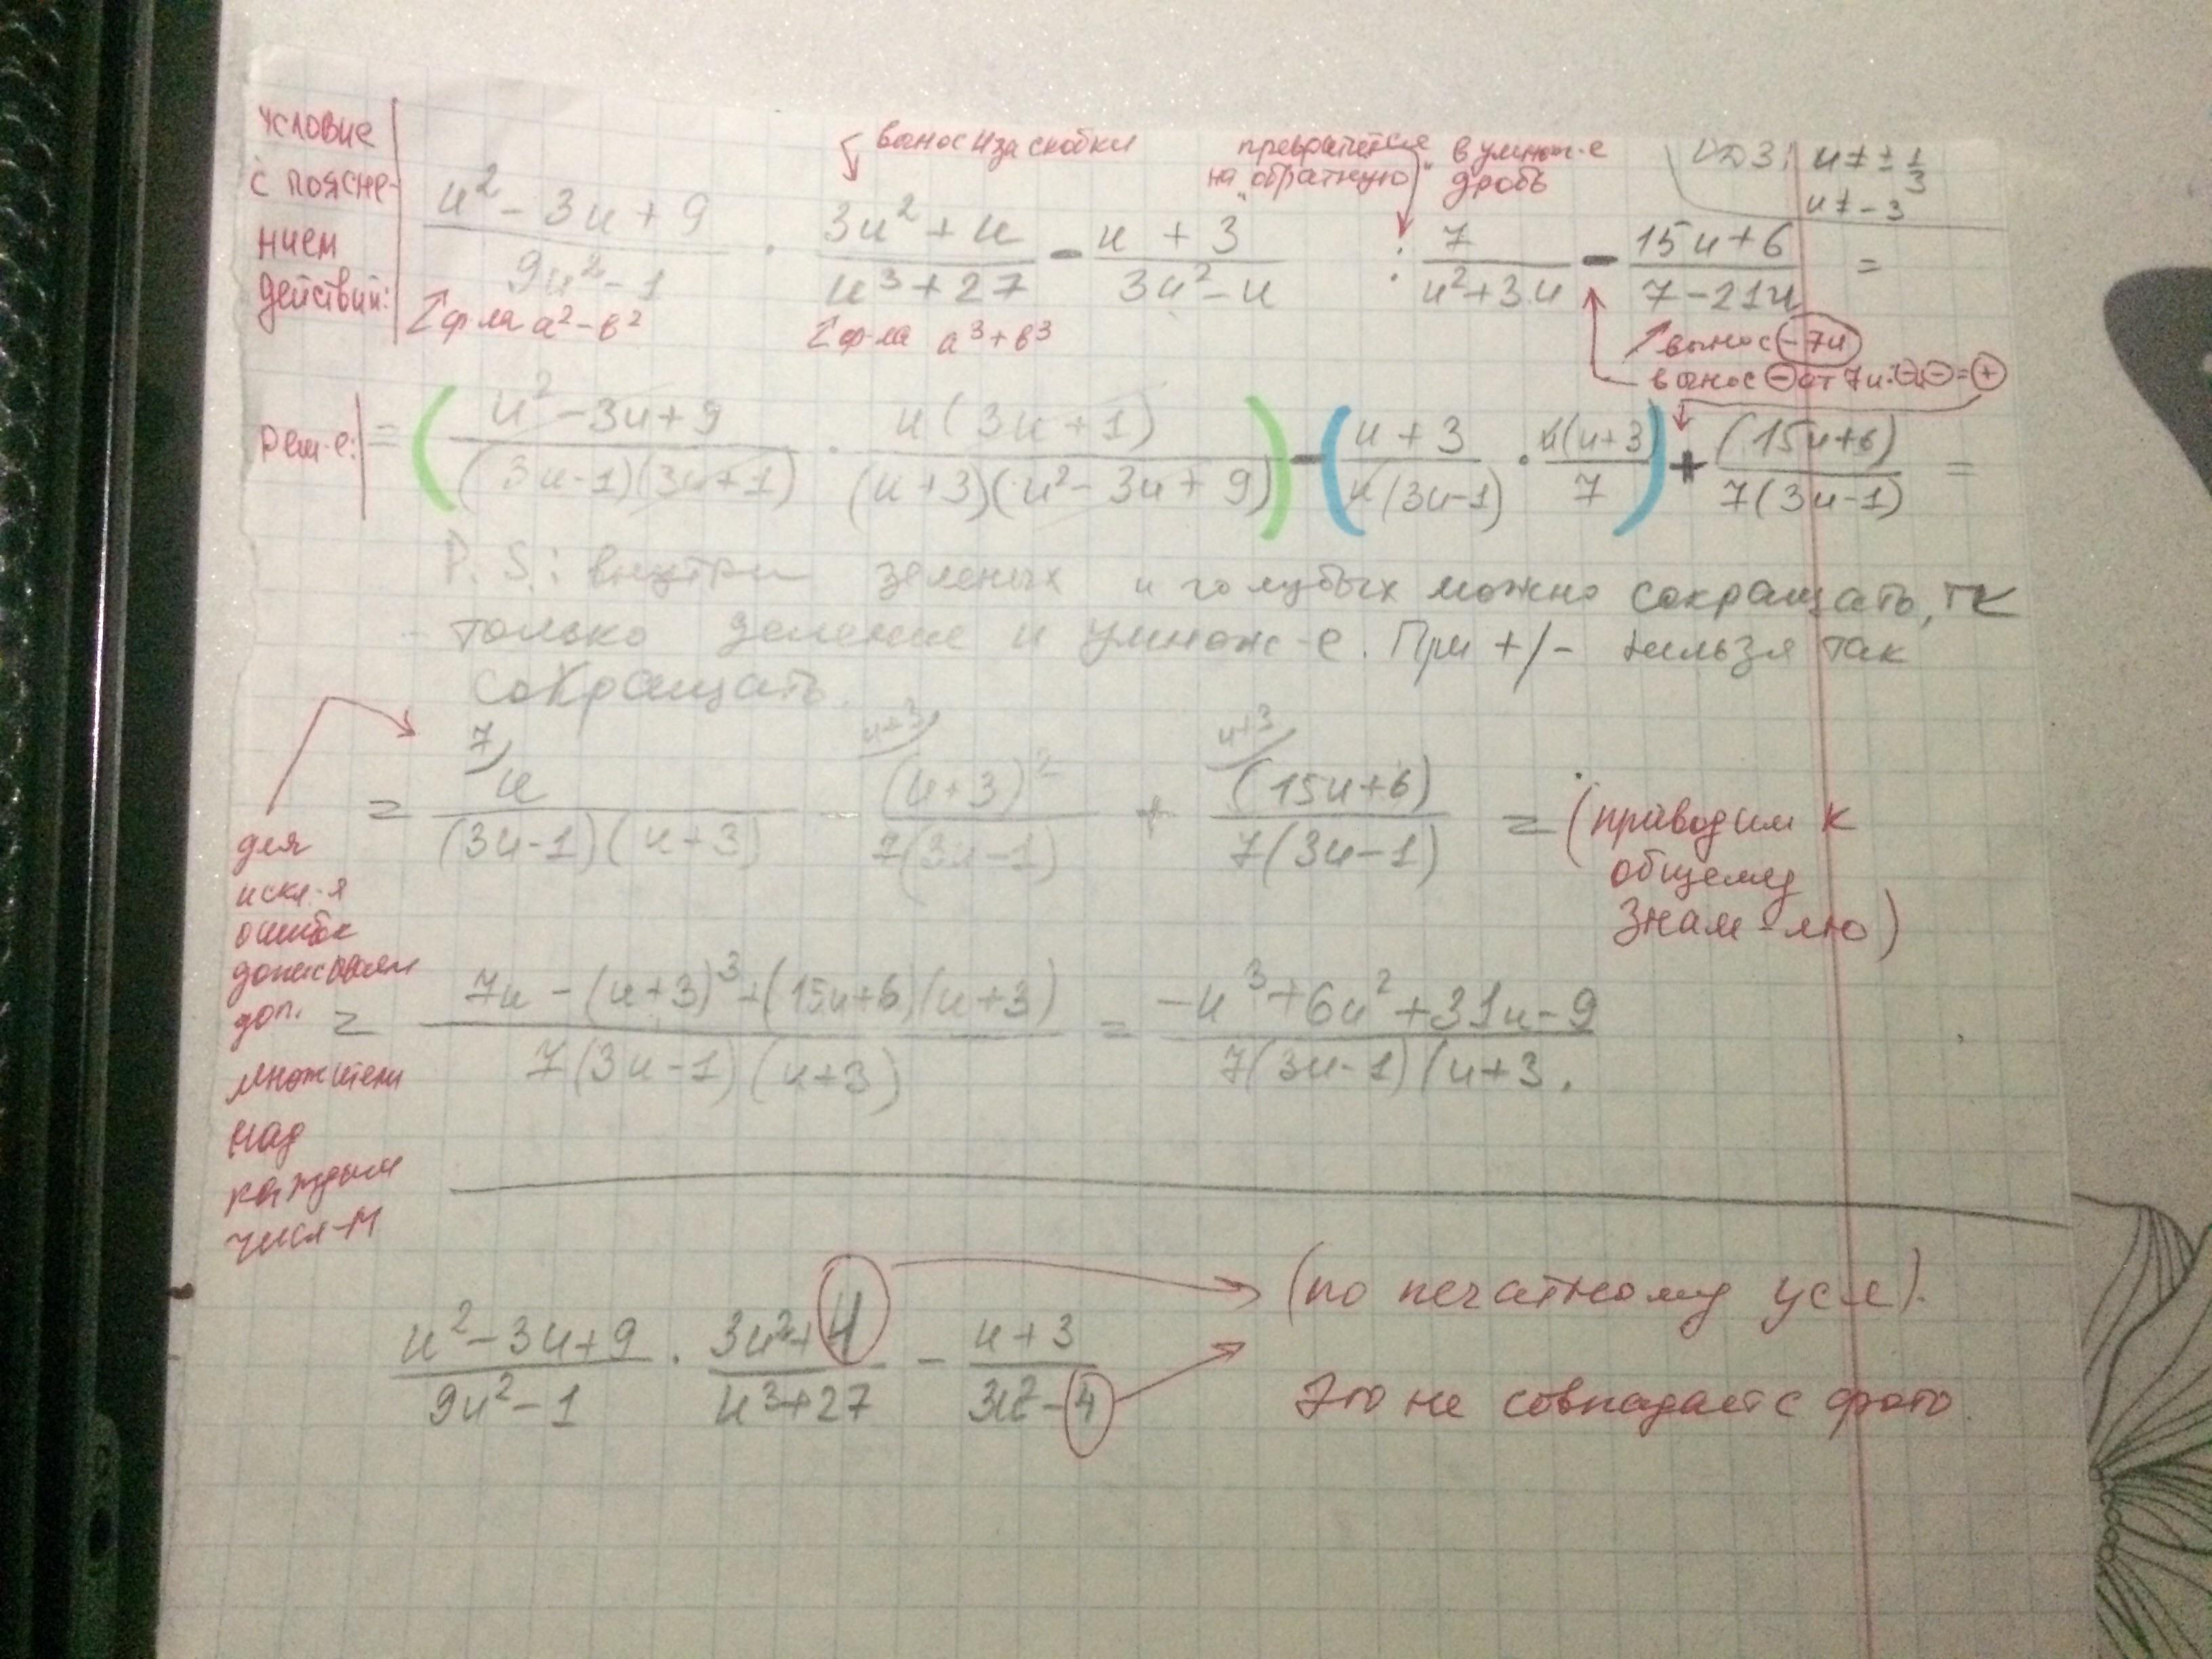 условие
с поясне-
нием
действий:
вынос и за скобки
превратится в умнож-е
на "обратную" дробь
ОДЗ: u ≠ ± 1/3
u ≠ -3
(u² - 3u + 9)/(9u² - 1) · (3u² + u)/(u³ + 27) - (u + 3)/(3u² - u) : 7/(u² + 3u) - (15u + 6)/(7 - 21u) =
↑ ф-ла a² - b²
↑ ф-ла a³ + b³
↗ вынос -7u
вынос ⊖ от 7u: ⊖ ⊖ = ⊕
реш-е:
= ((u² - 3u + 9)/((3u - 1)(3u + 1)) · u(3u + 1)/((u + 3)(u² - 3u + 9))) - ((u + 3)/(u(3u - 1)) · u(u + 3)/7) + (15u + 6)/(7(3u - 1)) =
P.S.: внутри зеленых и голубых можно сокращать, тк
только деление и умнож-е. При +/- нельзя так
сокращать.
7/ u+3/ u+3/
= u/((3u - 1)(u + 3)) - (u + 3)²/(7(3u - 1)) + (15u + 6)/(7(3u - 1)) = (приводим к
общему
знам-лю)
для
искл-я
ошибок
дописываем
доп.
множители
над
каждым
числ-м
= (7u - (u + 3)³ + (15u + 6)(u + 3))/(7(3u - 1)(u + 3)) = (-u³ + 6u² + 31u - 9)/(7(3u - 1)(u + 3.
(u² - 3u + 9)/(9u² - 1) · (3u² + 4)/(u³ + 27) - (u + 3)/(3u² - 4)
(по печатному усл).
Это не совпадает с фото